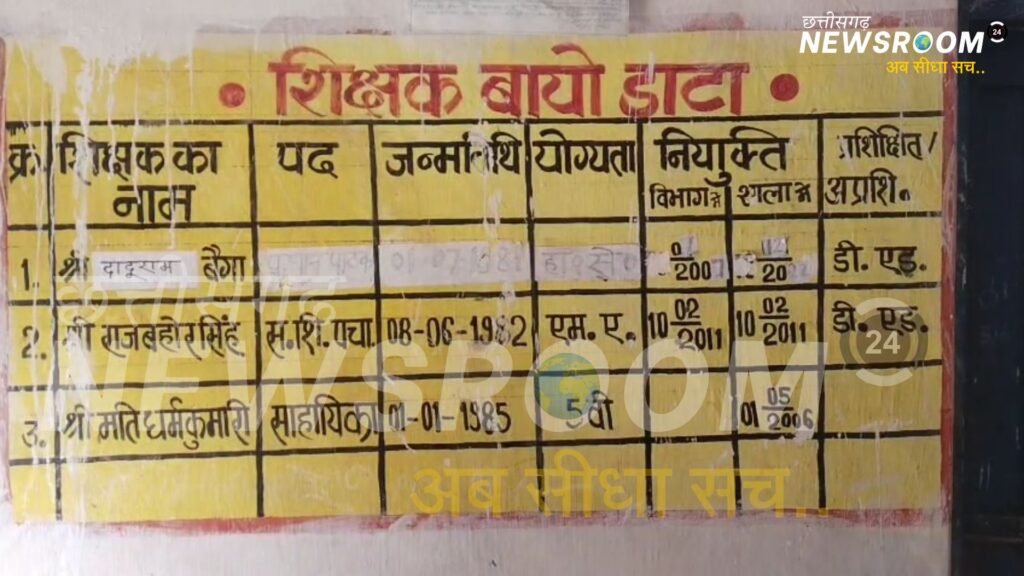 छत्तीसगढ़
NEWSROOM 24
अब सीधा सच..
• शिक्षक बायो डाटा •
क्र. शिक्षक का नाम पद जन्मतिथि योग्यता नियुक्ति प्रशिक्षित/
विभाग में शाला में अप्रशि.
1. श्री दादूराम बैगा 01-07-198 डी. एड.
2. श्री राजबहोर सिंह स.शि.पंचा. 08-06-1982 एम. ए. 10 02/2011 10 02/2011 डी. एड.
3. श्री मति धर्मकुमारी साहायिका 01-01-1985 5 वी 01 05/2006
छत्तीसगढ़
NEWSROOM 24
अब सीधा सच..